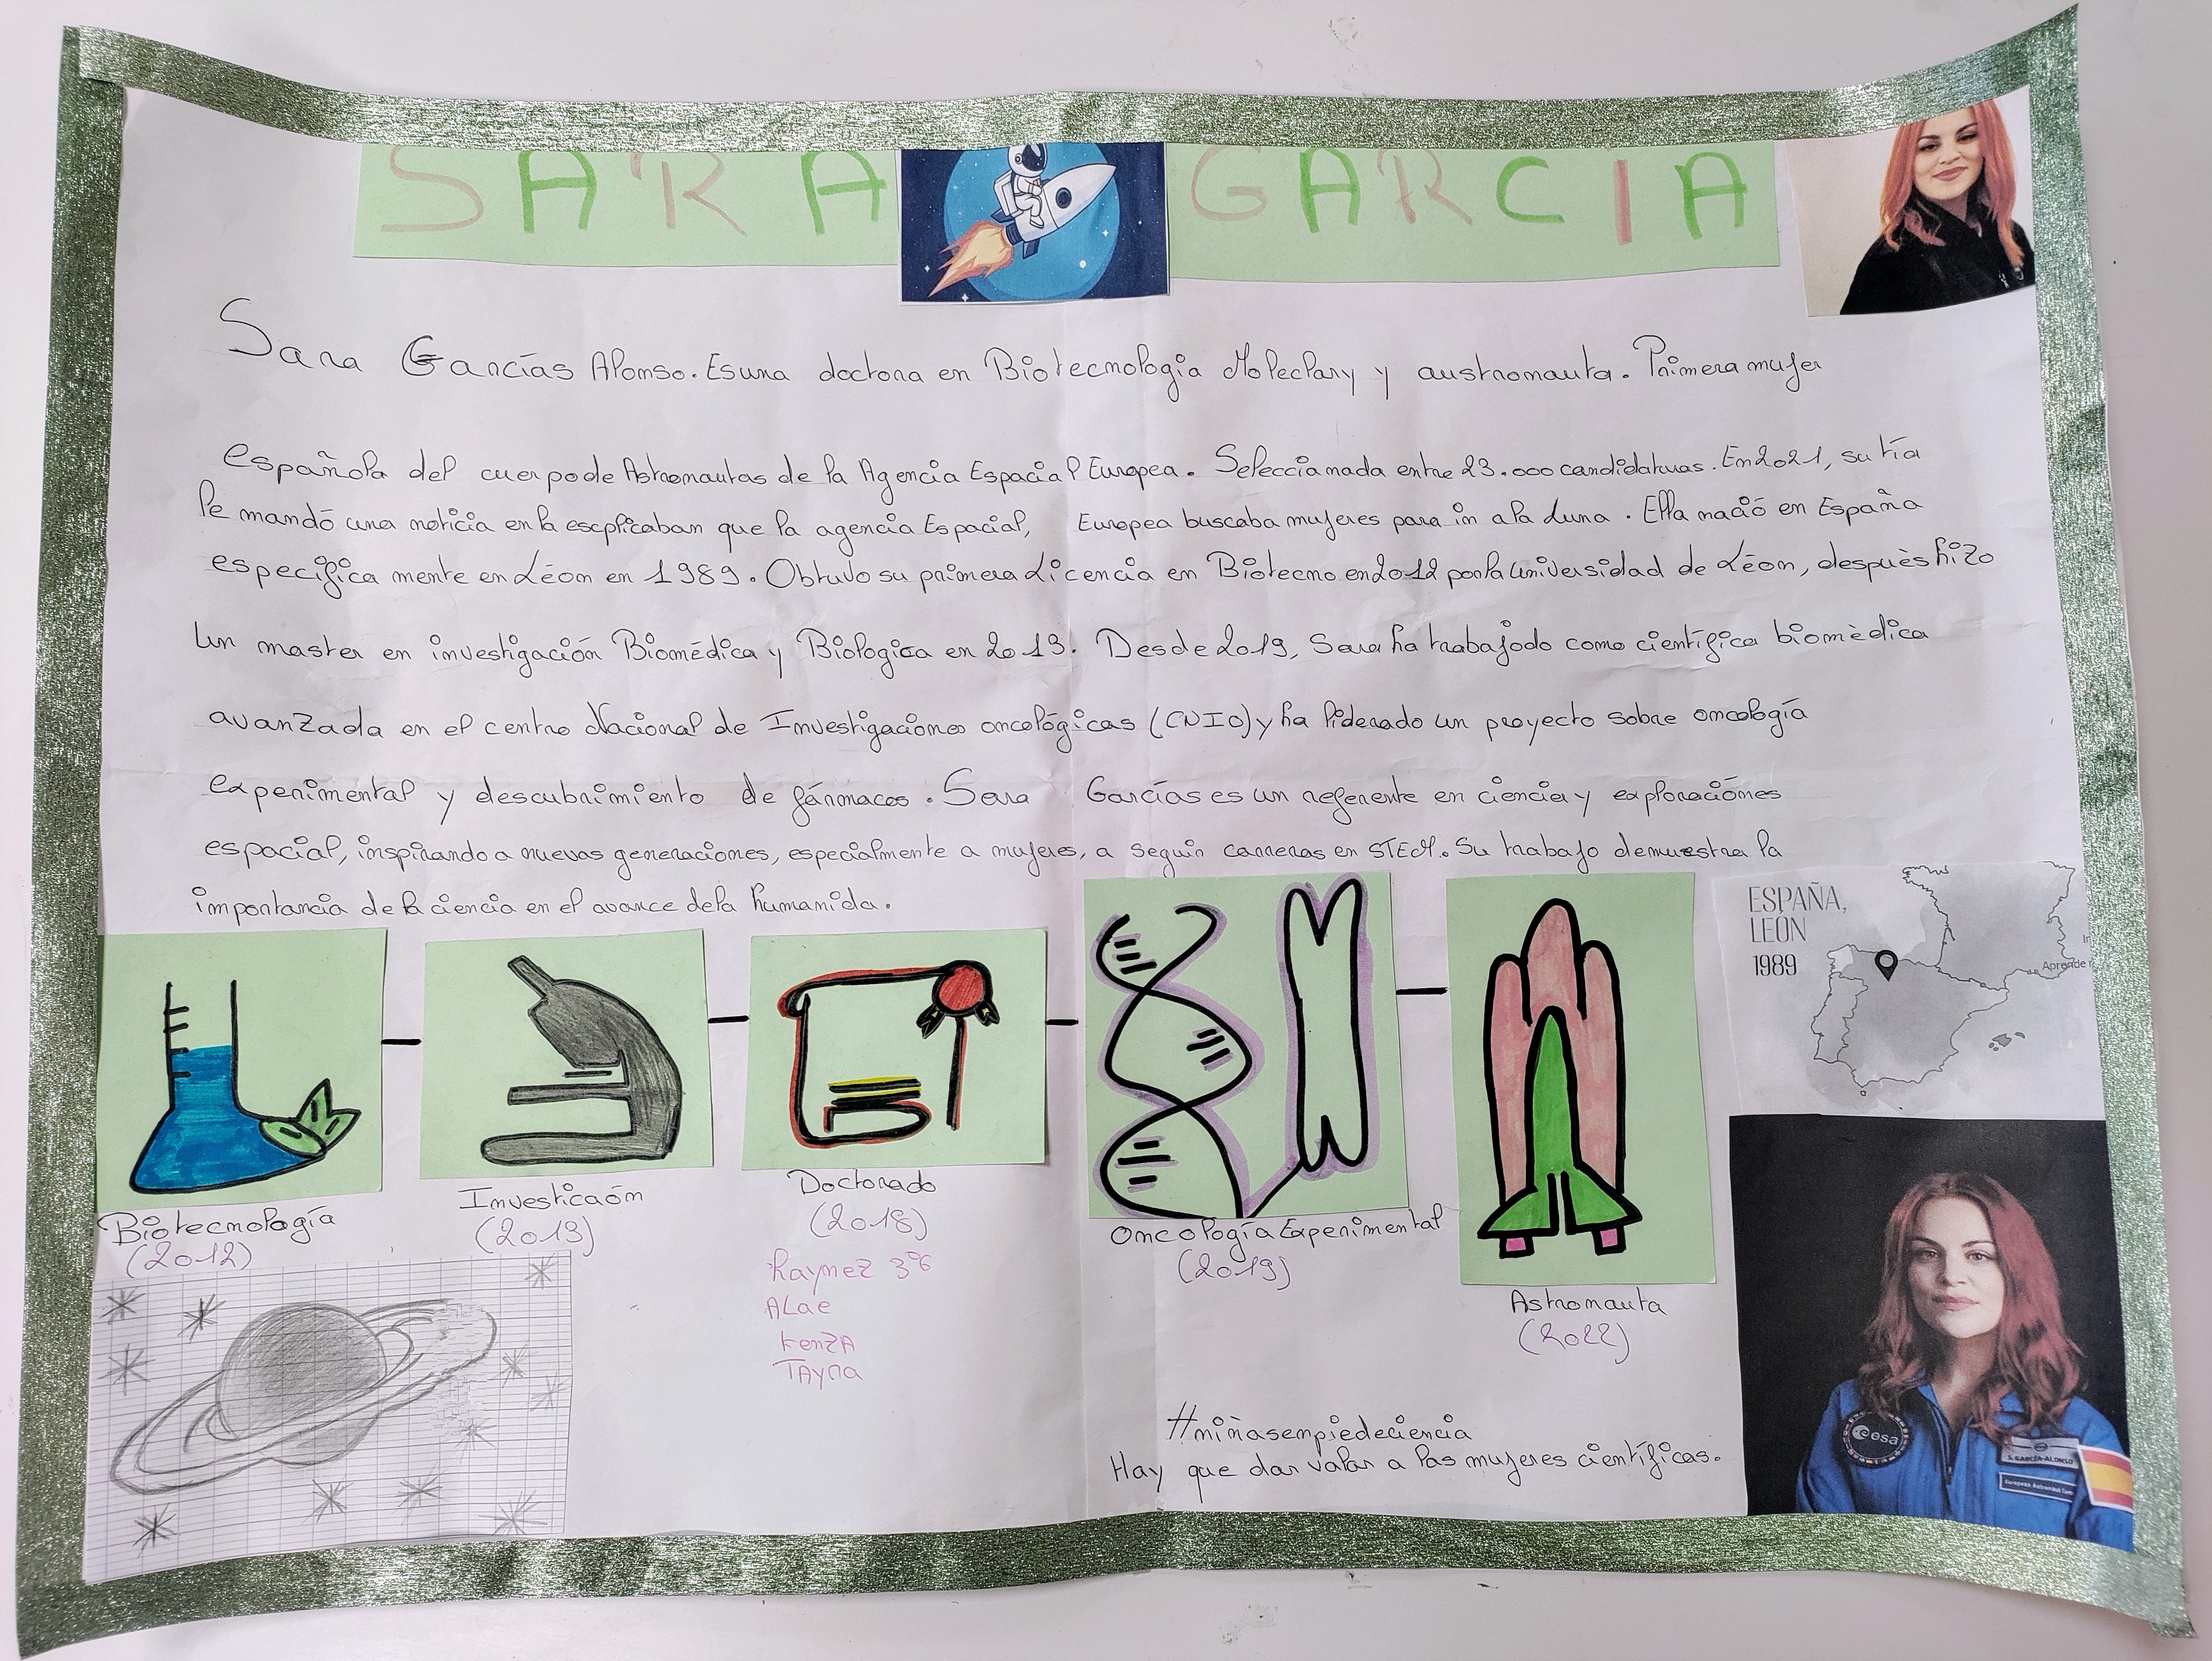 SARA GARCIA
Sara Garcías Alonso. Es una doctora en Biotecnología Moleclary y austronauta. Primera mujer
española del cuerpo de Astronautas de la Agencia Espacial Europea. Seleccianada entre 23.000 candidaturas. En 2021, su tía
le mandó una noticia en la escplicaban que la agencia Espacial, Europea buscaba mujeres para ir a la Luna. Ella nació en España
especifica mente en Léon en 1989. Obtuvo su primera Licencia en Biotecno en 2012 por la Universidad de Léon, despuès hizo
un master en investigación Biomédica y Biologica en 2013. Desde 2019, Sara ha trabajodo como científica biomèdica
avanzada en el centro Nacional de Investigaciones oncológicas (CNIO) y ha liderado un proyecto sobre oncología
experimental y descubrimiento de fármacos. Sara Garcías es un referente en ciencia y exploraciónes
espacial, inspirando a nuevas generaciones, especialmente a mujeres, a seguir carreras en STEM. Su trabajo demuestra la
importancia de la ciencia en el avance dela humanida.
ESPAÑA,
LEÓN
1989
Aprende
Biotecnología
(2012)
Investicaón
(2013)
Doctorado
(2018)
Oncología Experimental
(2019)
Astronauta
(2022)
Raynez 3º6
ALae
KenzA
TAyra
#niñasenpiedeciencia
Hay que dar valar a las mujeres científicas.
esa
S. GARCÍA-ALONSO
European Astronaut